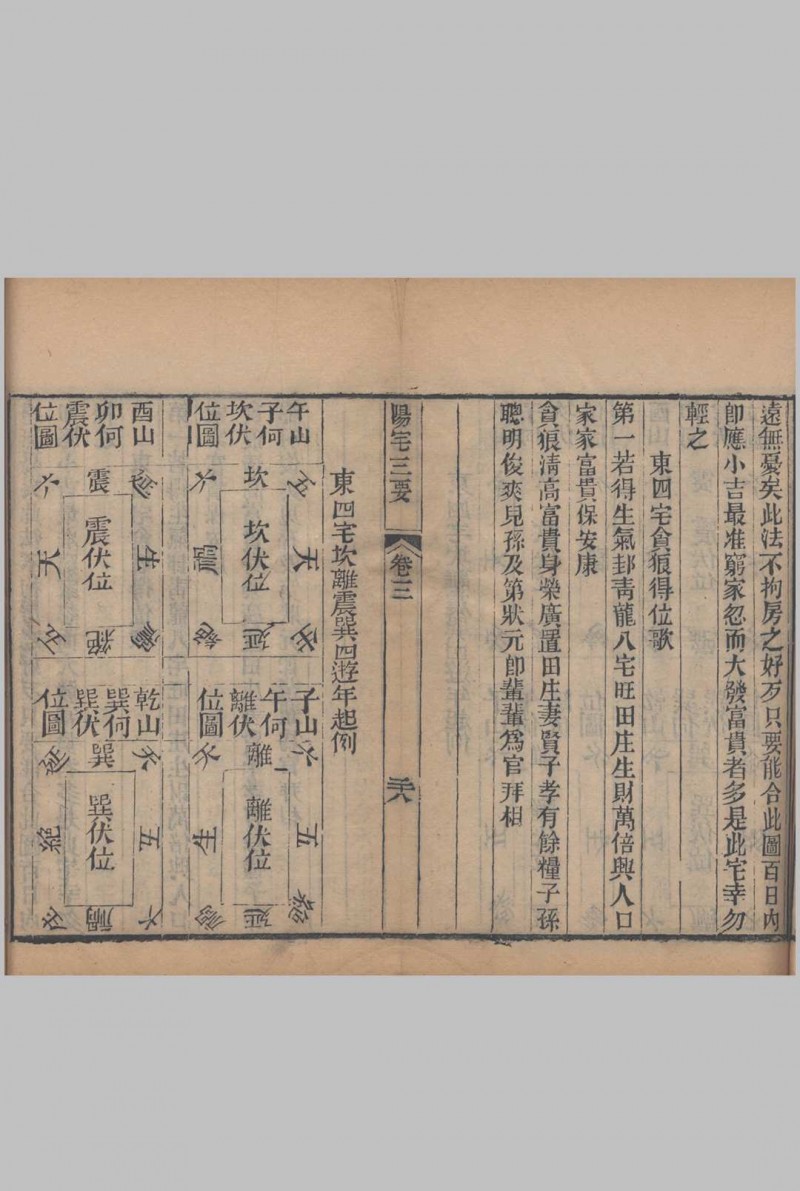 遠無憂矣此法不拘房之好歹只要能合此圖百日內
卽應小吉最准窮家忽而大發富貴者多是此宅幸勿
輕之
東四宅貪狼得位歌
第一若得生氣卦靑龍八宅旺田庄生財萬倍與人口
家家富貴保安康
貪狼淸高富貴身榮廣置田庄妻賢子孝有餘糧子孫
聰明俊爽兒孫及第狀元卽輩輩爲官拜相
陽宅三要
卷三
二八
東四宅坎離震巽四遊年起例
午山
子何
坎伏
位圖
坎
六
天
五
禍
坎伏位
絕
延
子山
午何
離伏
位圖
離
六
五
絕
生
離伏位
禍
延
酉山
卯何
震伏
位圖
震
六
生
禍
天
震伏位
五
絕
乾山
巽何
巽伏
位圖
巽
天
五
六
延
巽伏位
絕
禍
生